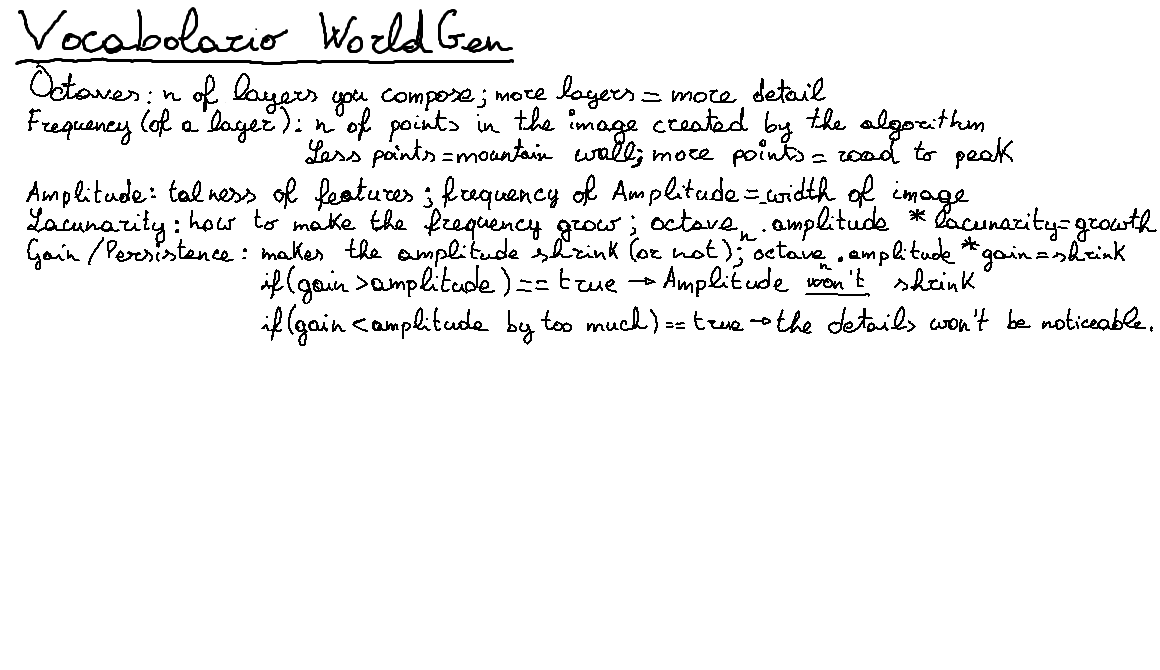 Vocabolario WorldGen
Octaves: n of layers you compose; more layers = more detail
Frequency (of a layer): n of points in the image created by the algorithm
Less points = mountain wall; more points = road to peak
Amplitude: talness of features; frequency of Amplitude = width of image
Lacunarity: how to make the frequency grow; octave n . amplitude * lacunarity = growth
Gain/Persistence: makes the amplitude shrink (or not); octave n . amplitude * gain = shrink
if (gain > amplitude) == true → Amplitude won't shrink
if (gain < amplitude by too much) == true → the details won't be noticeable.